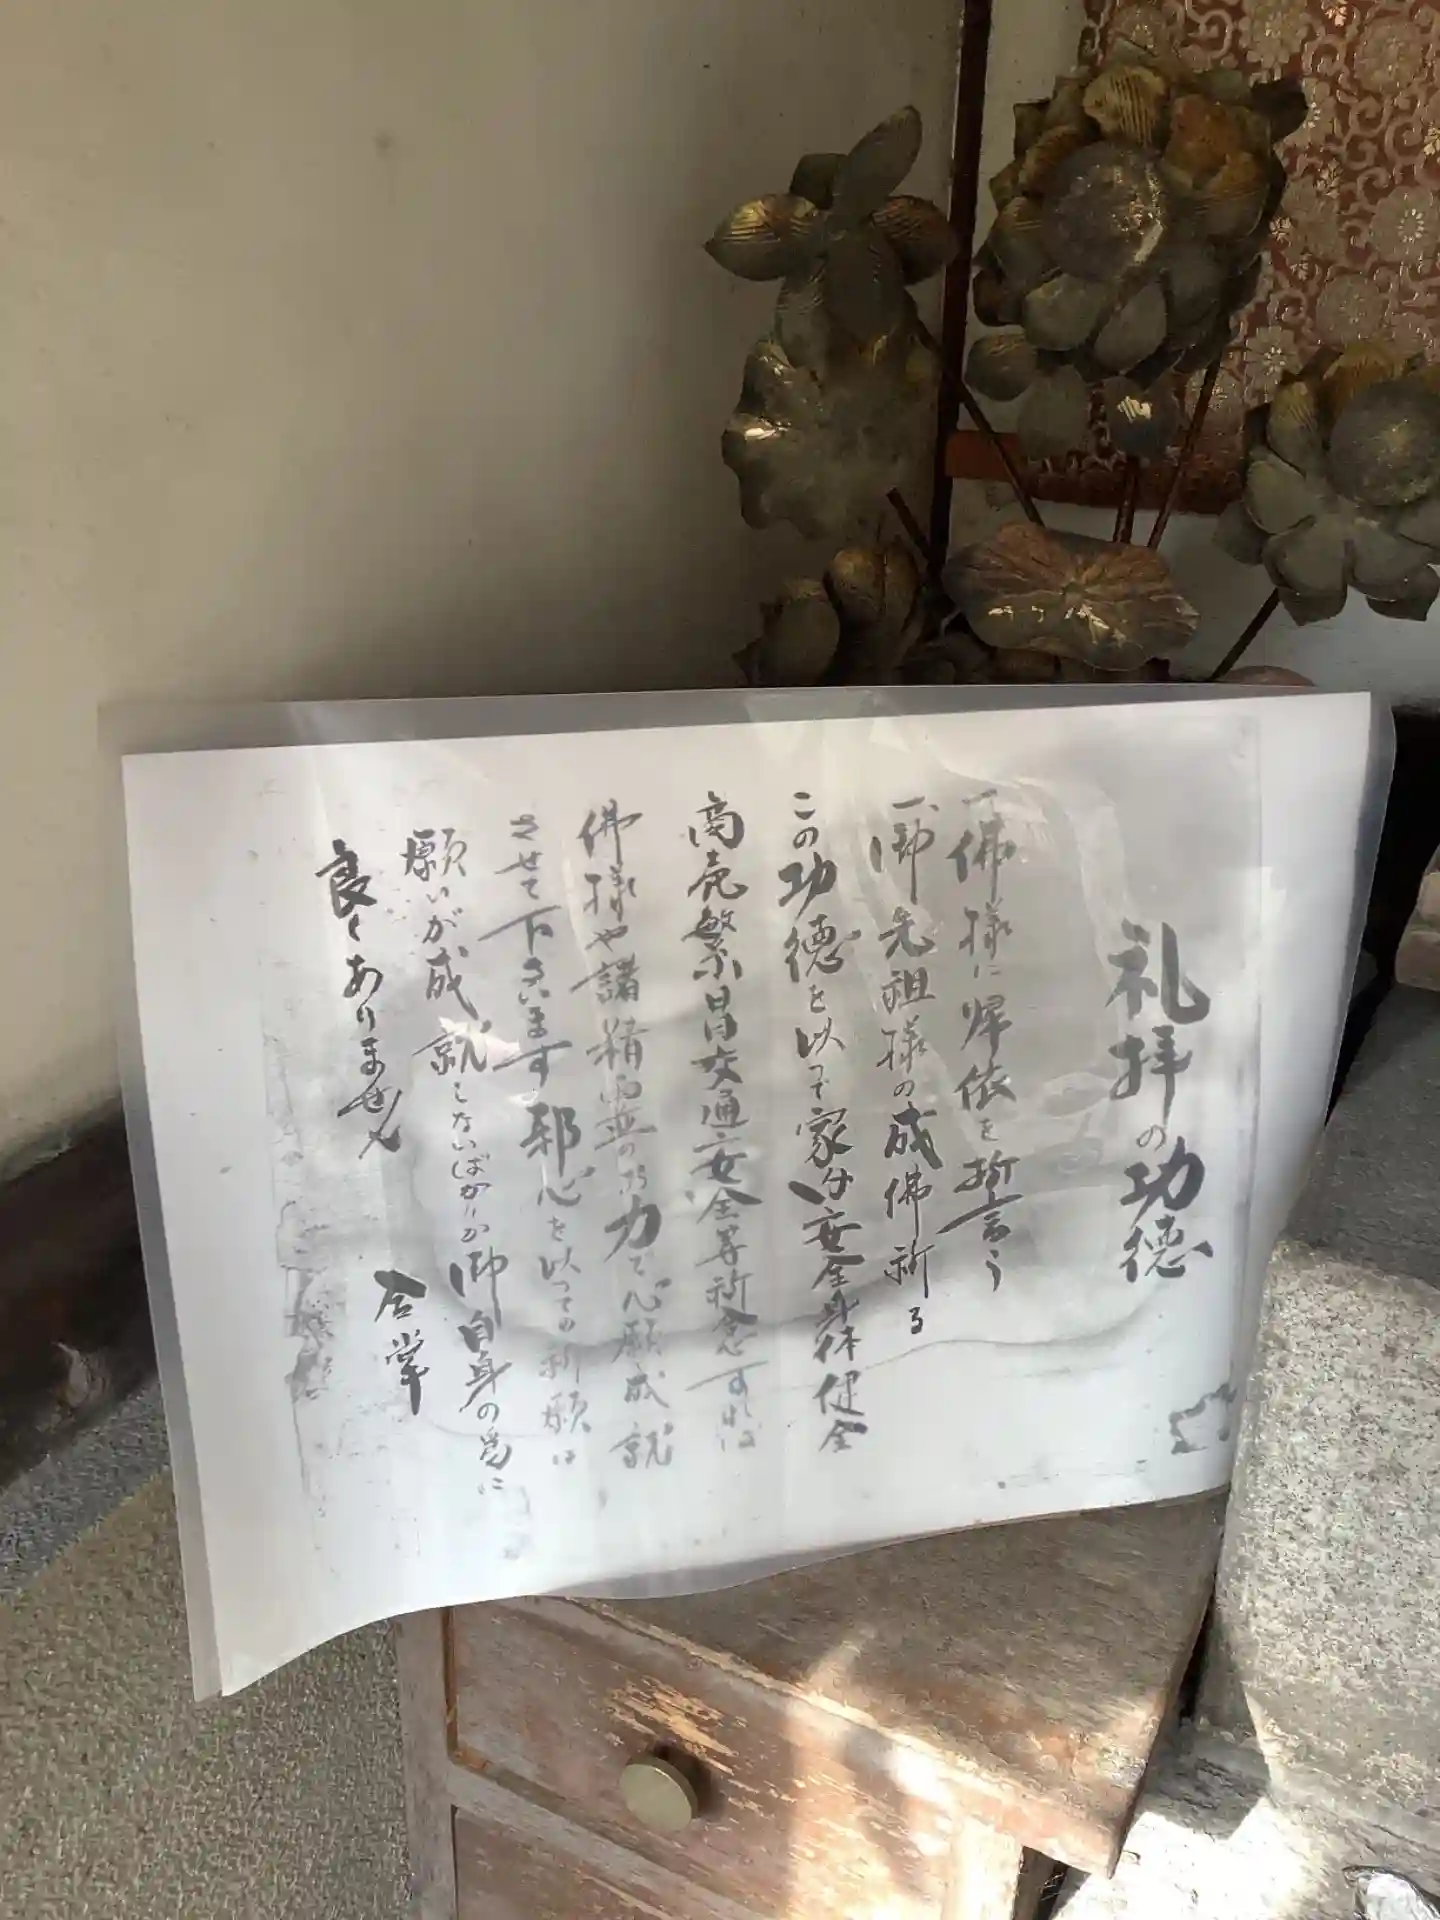 礼拝の功徳
一、佛様に帰依を誓う
一、御先祖様の成佛祈る
この功徳を以って家内安全身体健全
商売繁昌交通安全等祈念すれば
佛様や諸精霊の功力で心願成就
させて下さいます。邪心を以っての祈願は
願いが成就しないばかりか御自身の為に
良くありません
合掌